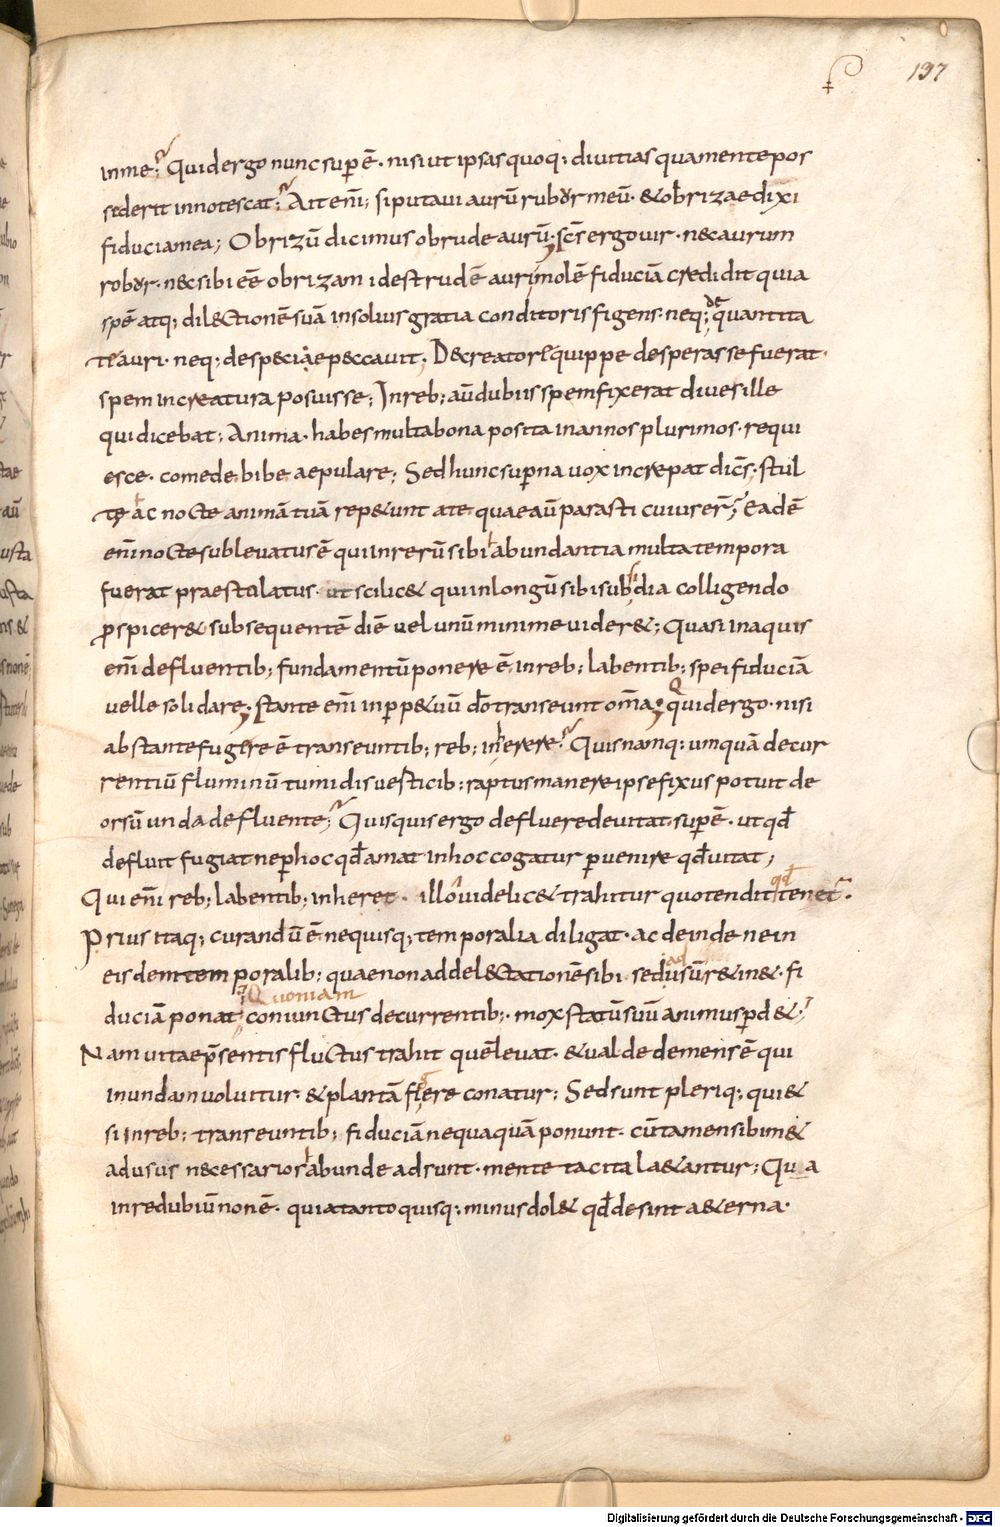 137
inme; Quidergo nunc supērē· nisiut ipsas quoq; diuitias quamente pos
sederit innotescat; Ait eni; siputaui aurū robor meū· &obrizae dixi
fiducia mea; Obrizū dicimus obrude aurū· scs ergo uir· nec aurum
robor· nec sibi eē obrizam id est rudē auri molē fiduciā credidit quia
spē atq; dilectionē suā in solius gratia conditoris figens· neq; de quantita
te auri· neq; de specie peccauit· De creatore quippe desperasse fuerat·
spem increatura posuisse; Inreb; aū dubiis spem fixerat diues ille
qui dicebat; Anima· habes multa bona posita in annos plurimos· requi
esce· comede bibe aepulare; Sed hunc supna uox increpat dics· stul
te ac nocte animā tuā repetunt a te quae aū parasti cuius er; Eadē
eni nocte sublevatus ē qui in rerū sibi abundantia multa tempora
fuerat praestulatus· ut scilic& qui in longū sibi subsidia colligendo
pspicer& subsequentē diē uel unū minime uider&; Quasi in aquis
eni defluentib; fundamentū ponere ē in reb; labentib; spei fiduciā
uelle solidare; stante eni inppetuū do transeunt oma; quid ergo· nisi
ab stante fugere ē transeuntib; reb; inherere; Quis namq; umquā decur
rentiū fluminū tumidis uesticib; raptus manere ipse fixus potuit de
orsū unda defluente; Quisquis ergo defluere deuitat supē· ut qd
defluit fugiat ne phoc qd amat in hoc cogatur puenire qd uitat;
Qui eni reb; labentib; inheret· illo uidelic& trahitur quo tendit qd tenet·
Prius itaq; curandū ē ne quisq; temporalia diligat· ac deinde ne in
eis dem temporalib; quae non ad delectationē sibi sed ad usū seru& in&· fi
duciā ponat Quoniam coniunctus decurrentib;· mox statū suū animus pd&;
Nam uitae psentis fluctus trahit quē leuat· & ualde demens ē qui
in undam uoluitur· & plantā figere conatur; Sed sunt pleriq; qui &
si in reb; transeuntib; fiduciā nequaquā ponunt· cū tamen sibim&
ad usus necessarios abunde adsunt· mente tacita laetantur; Qua
in re dubiū non ē· quia tanto quisq; minus dol& qd desint aeterna·
Digitalisierung gefördert durch die Deutsche Forschungsgemeinschaft - DFG